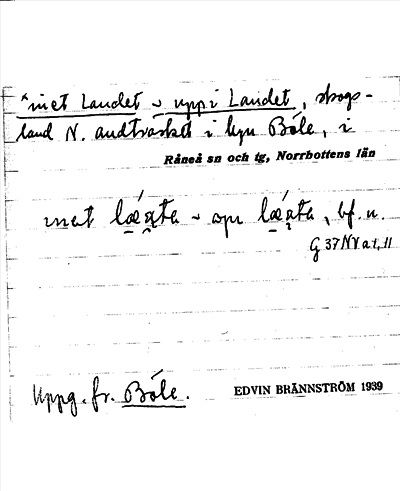 *inet Landet ~ uppi Landet, skogs-
land N. andträsket i byn Böle, i
Råneå sn och tg, Norrbottens län
inat ~ op bf. n.
G 37 N V a 1, 11
Uppg. fr. Böle.
EDVIN BRÄNNSTRÖM 1939